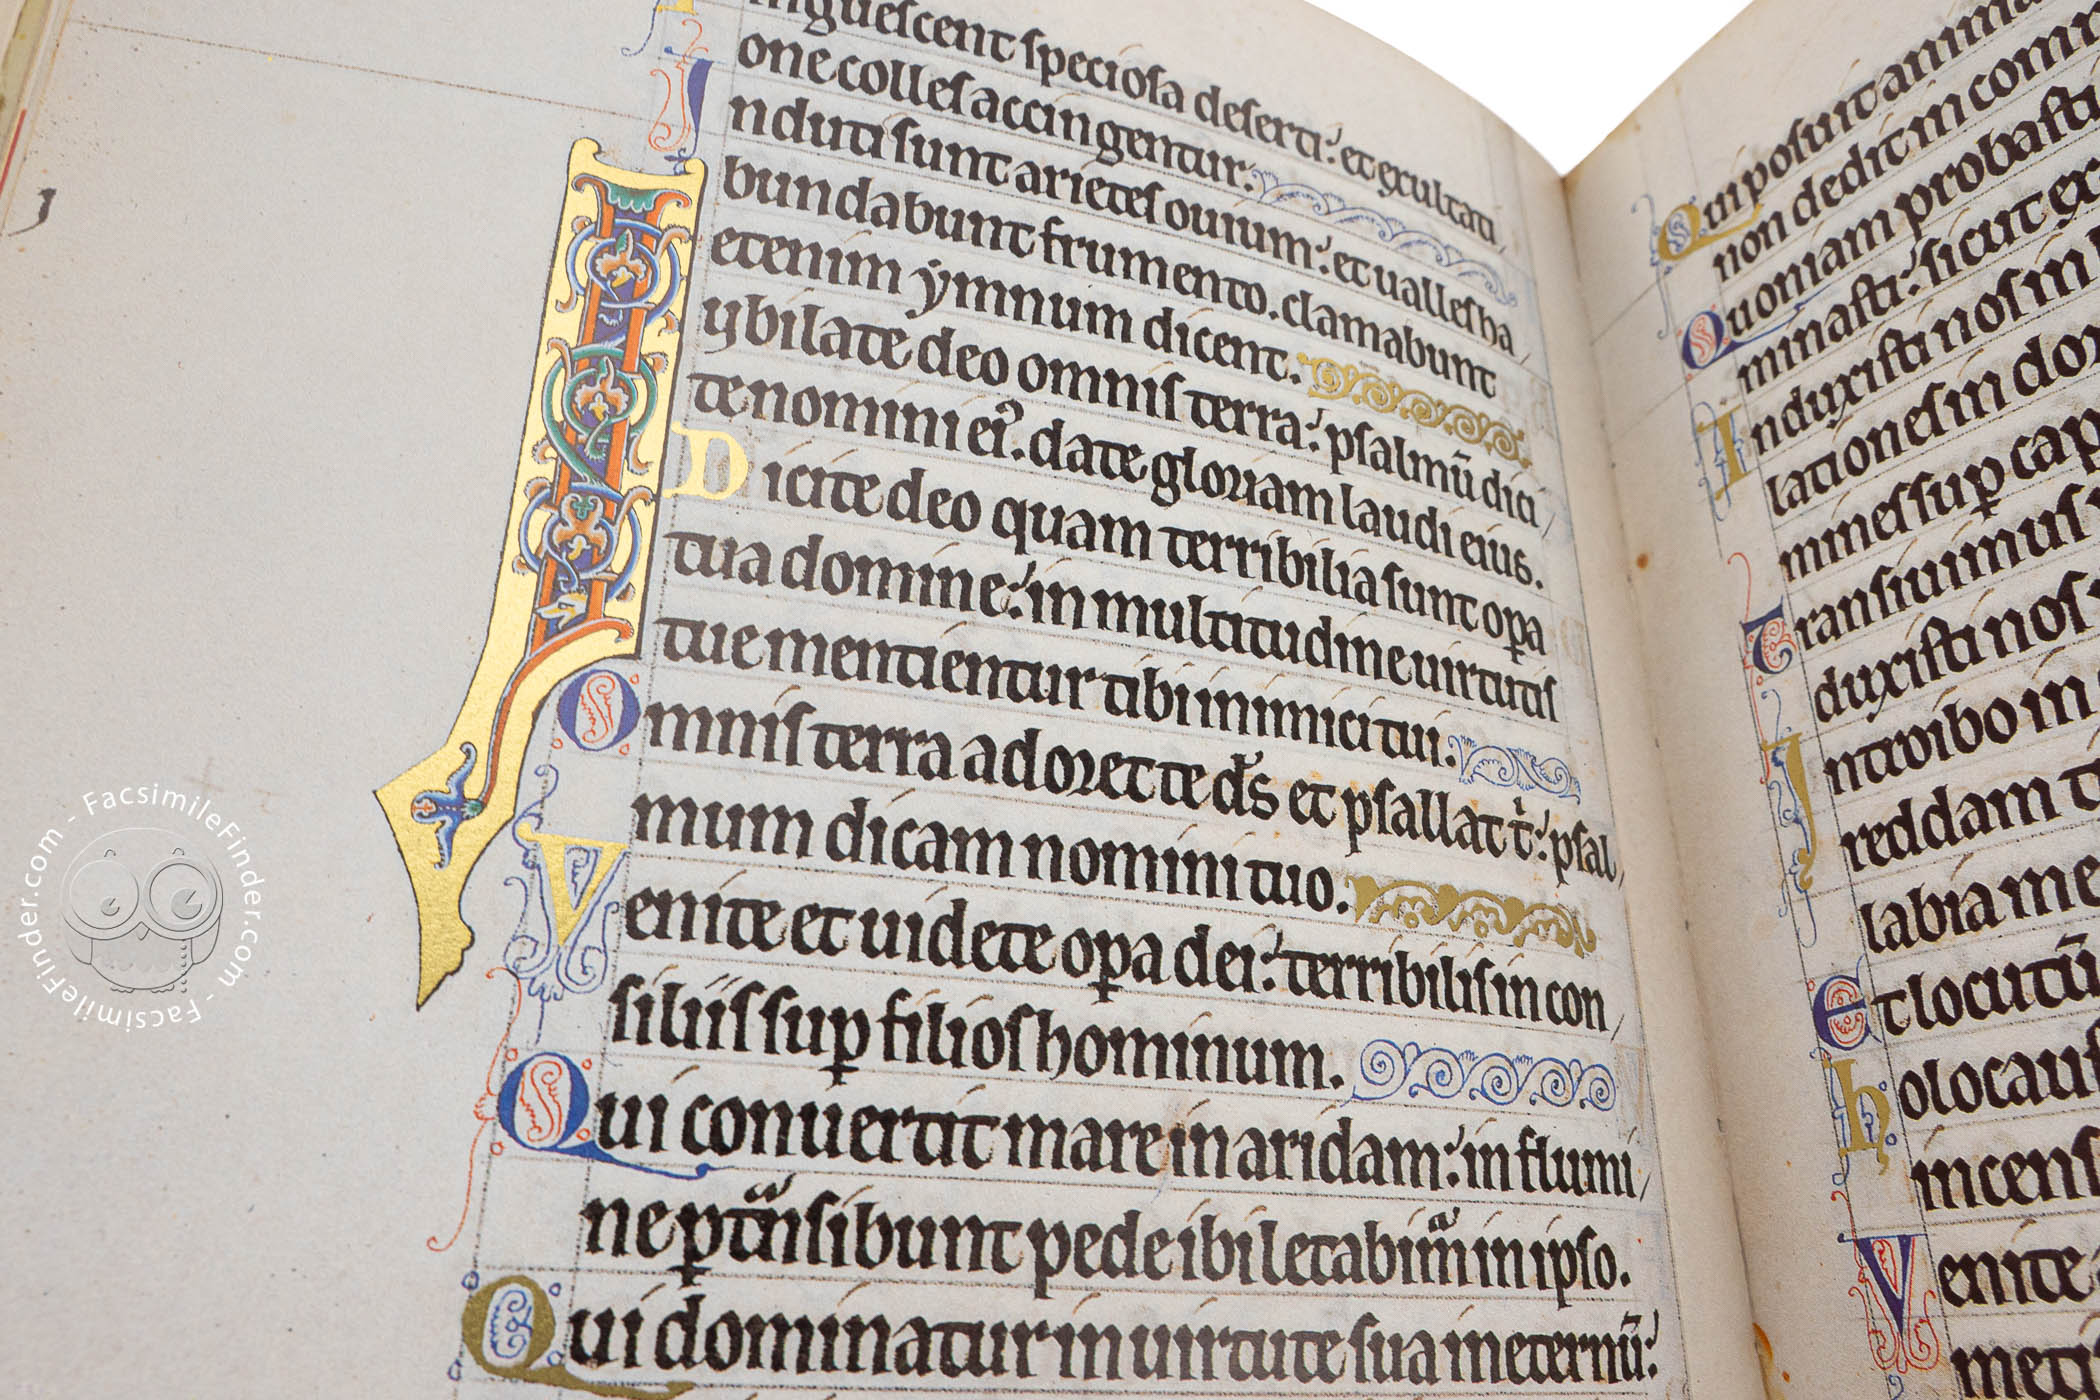 inguescent speciosa deserti: et exultati
one colles accingentur.
Induti sunt arietes ouium: et ualles ha
bundabunt frumento. clamabunt
etenim ẏmnum dicent.
Iubilate deo omnis terra: psalmū dici
te nomini ei᾿. date gloriam laudi eius.
Dicite deo quam terribilia sunt oꝑa
tua domine: in multitudine uirtutis
tue mentientur tibi inimici tui.
Omnis terra adoret te ds̄ et psallat t᷒: psal
mum dicam nomini tuo.
Venite et uidete oꝑa dei: terribilis in con
siliis suꝑ filios hominum.
Qui conuertit mare in aridam: in flumi
ne ꝑtͣnsibunt pede ibi letabimͣ in ipso.
Qui dominatur in uirtute sua in eternū:
Qui posuit anima
non dedit in com
Quoniam probasti
minasti: sicut ex
Induxisti nos in
lationes in do
mines suꝑ cap
Transiuimus
duxisti nos
Introibo in
reddam t
labia me
Et locutū
holocaus
incens
Venite
FacsimileFinder.com - FacsimileFinder.com -